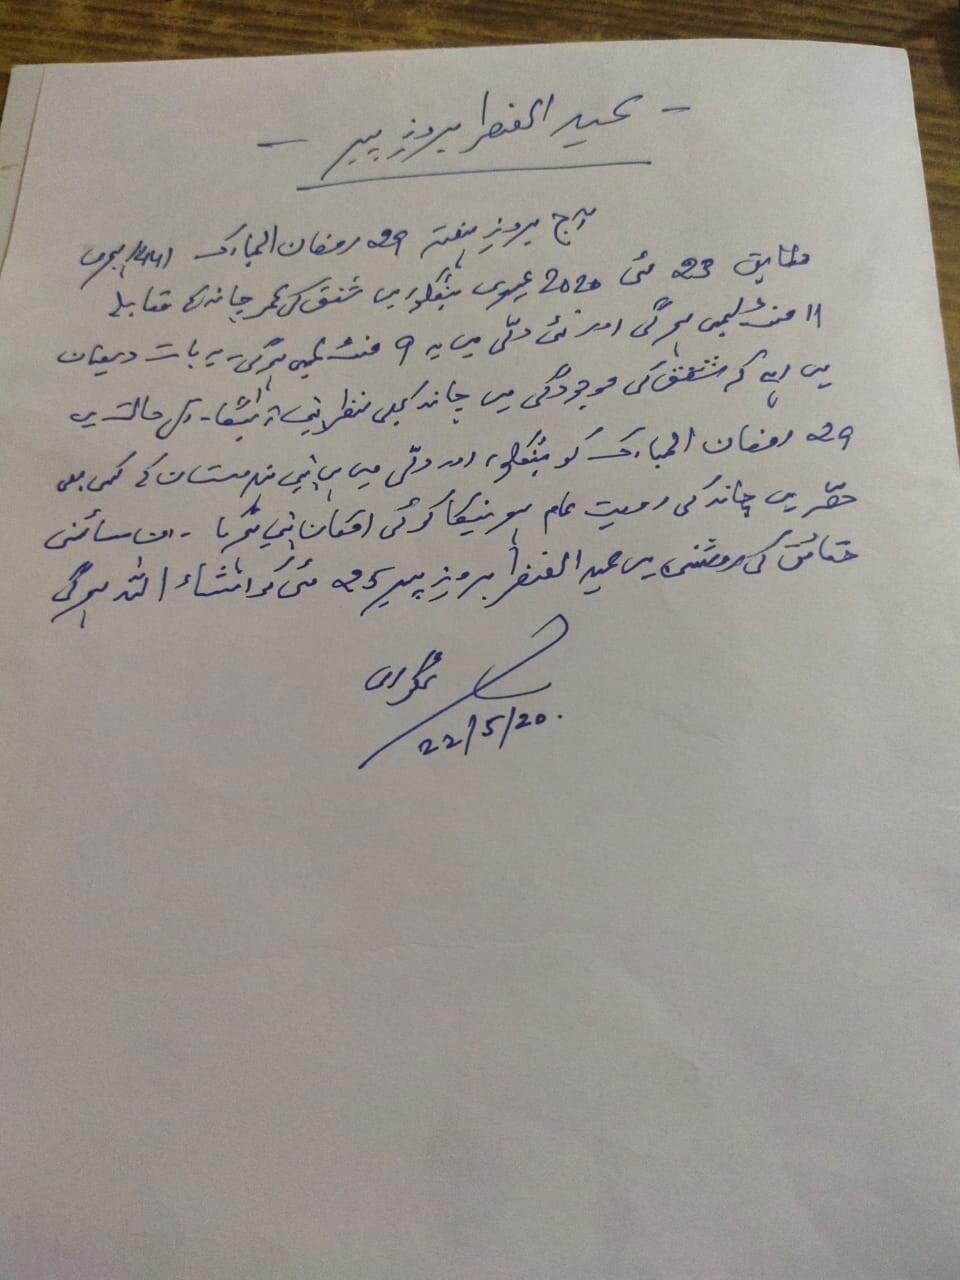 - عید الفطر بروز پیر -
آج بروز ہفتہ 29 رمضان المبارک 1441 ہجری
مطابق 23 مئی 2020 عیسوی بنگلور میں شفق کی عمر چاند کے مقابلے
11 منٹ لمبی ہوگی اور نئی دلّی میں یہ 9 منٹ لمبی ہوگی۔ یہ بات دھیان
میں رہے کہ شفق کی موجودگی میں چاند کبھی نظر نہیں آئیگا۔ اس حالت میں
29 رمضان المبارک کو بنگلور اور دلّی میں ہی نہیں ہندوستان کے کسی بھی
حصّہ میں چاند کی رویت عام ہونیکا کوئی امکان نہیں ہوگا۔ ان سائنسی
حقائق کی روشنی میں عید الفطر بروز پیر 25 مئی کو انشاء اللہ ہوگی
22/5/20.